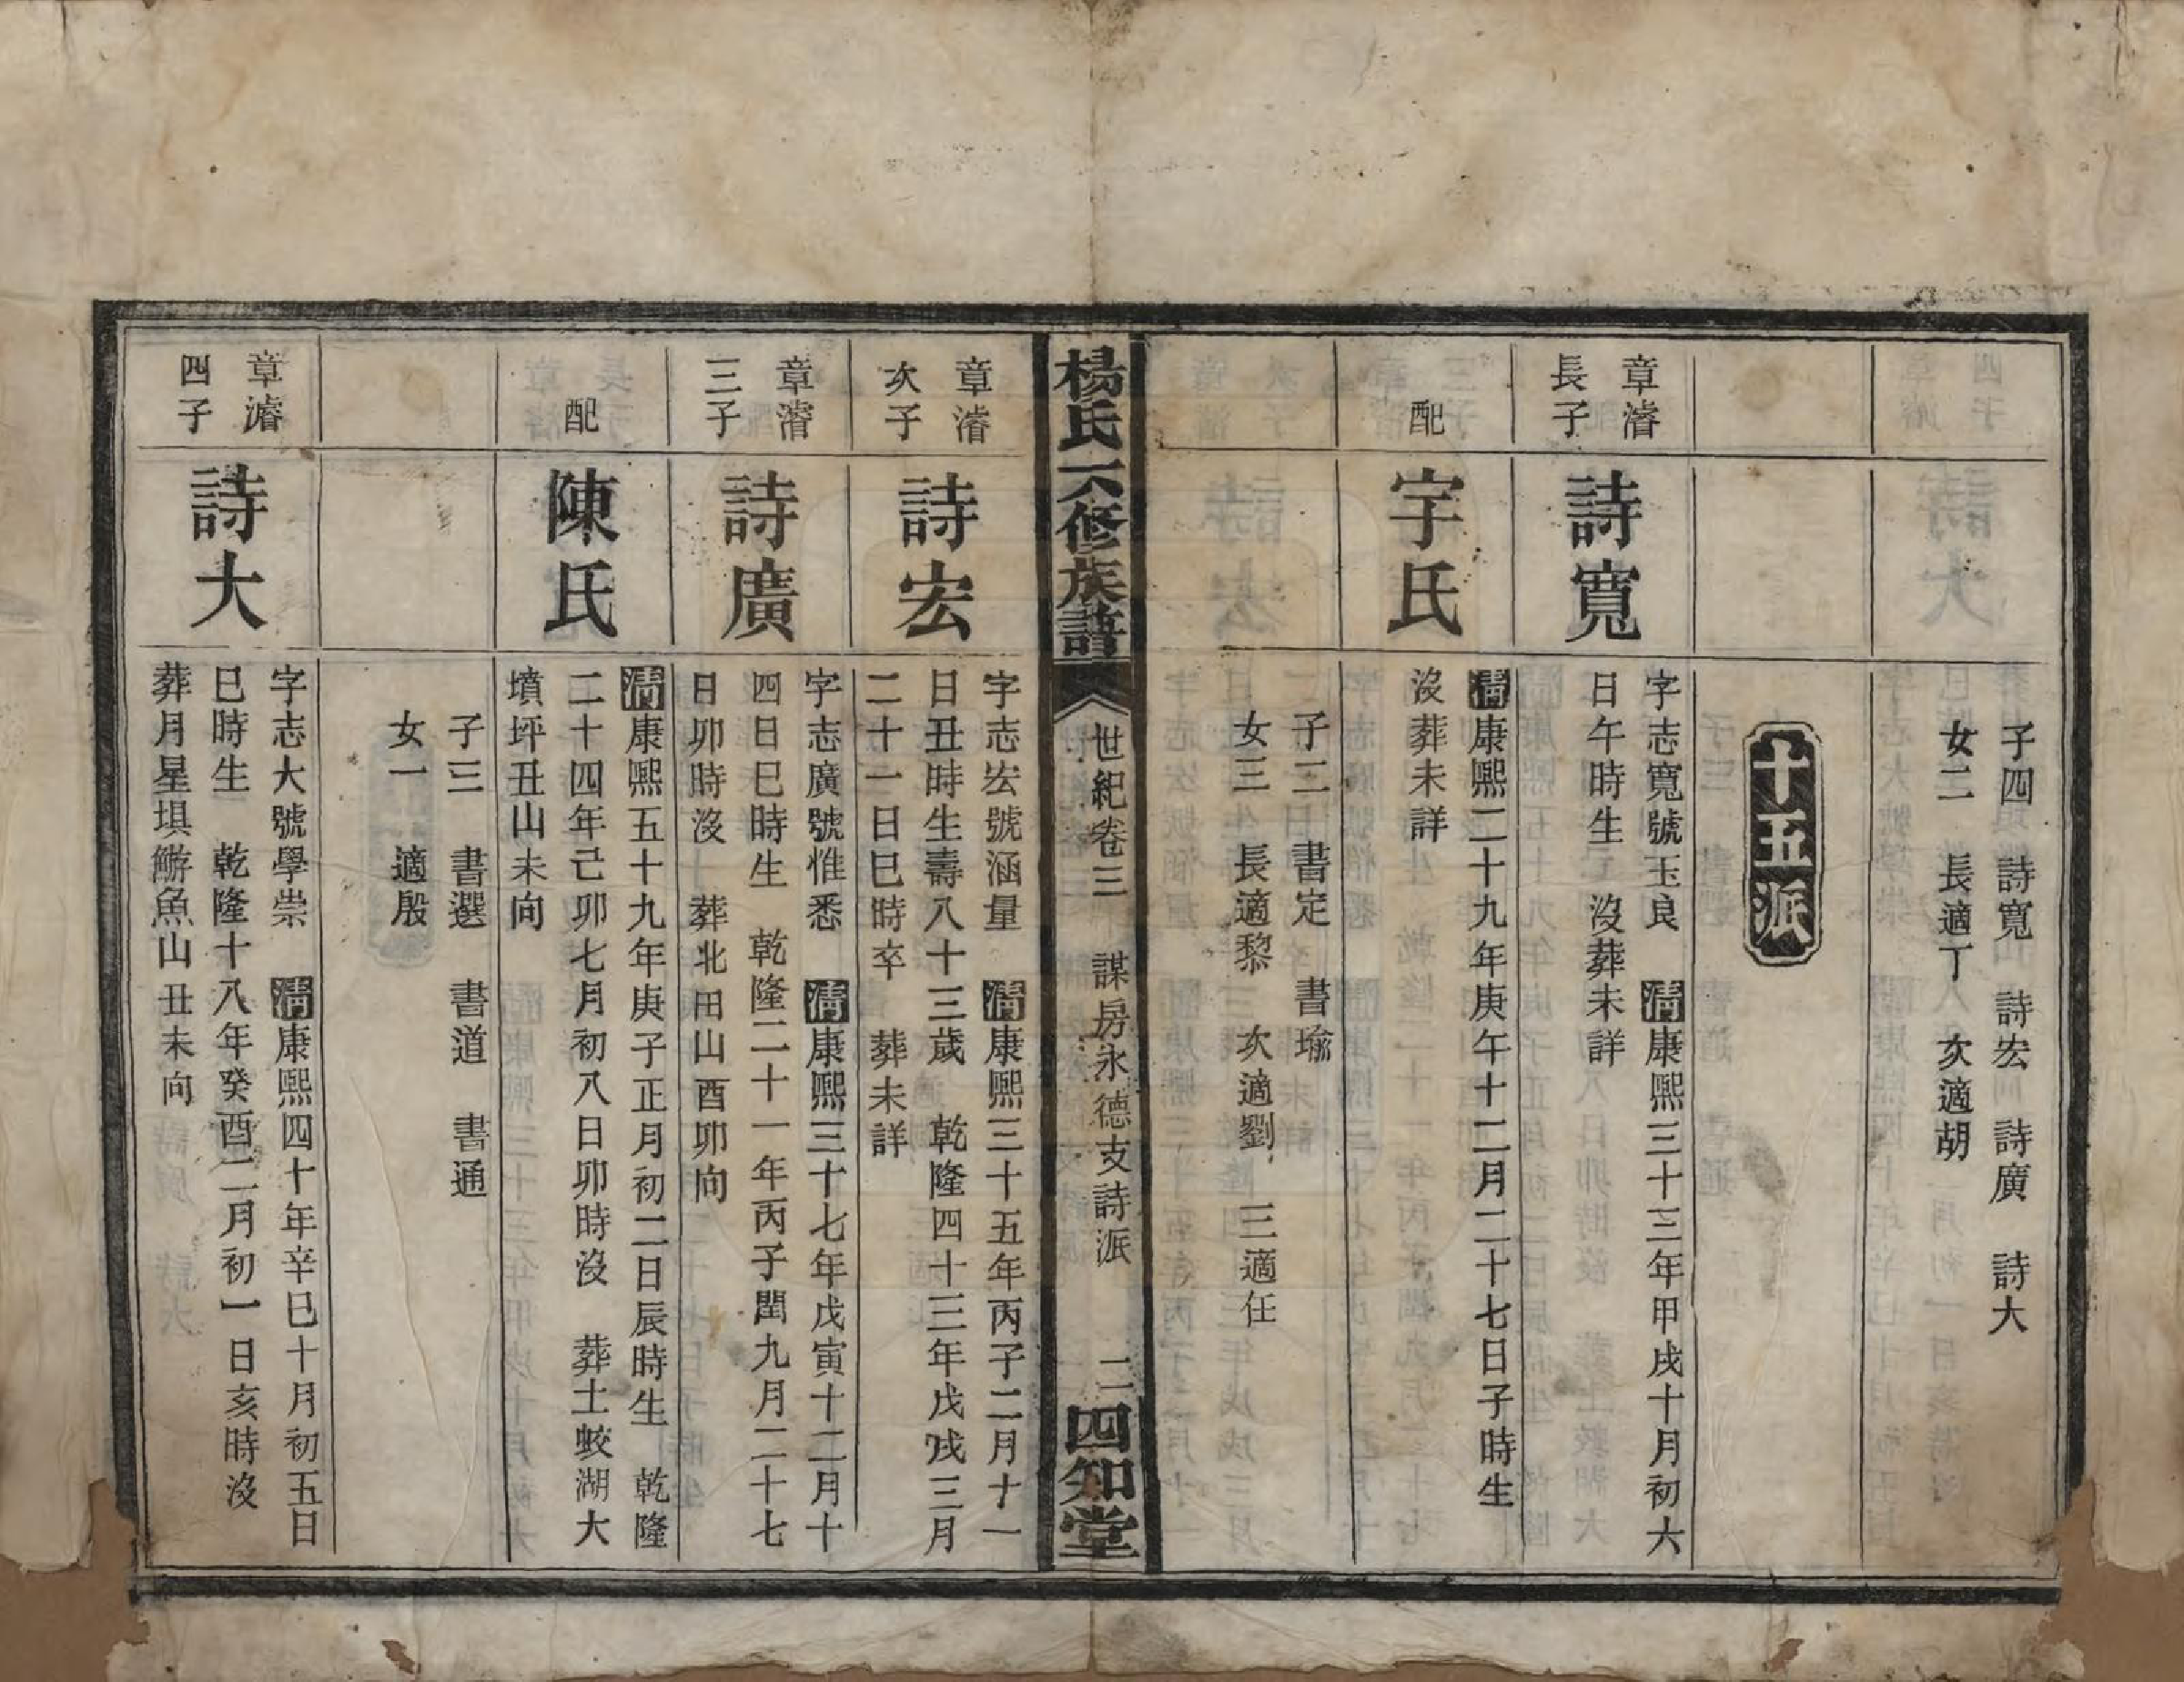 子四　詩寬　詩宏　詩廣　詩大
女二　長適丁　次適胡
十五派
章濬
長子
詩寬
字志寬號玉良　清康熙三十三年甲戌十月初六
日午時生　沒葬未詳
配
宇氏
清康熙二十九年庚午十二月二十七日子時生
沒葬未詳
子二　書定　書瑜
女三　長適黎　次適劉　三適任
楊氏六修族譜
世紀卷三　謀房永德支詩派　二
四知堂
章濬
次子
詩宏
字志宏號涵量　清康熙三十五年丙子二月十一
日丑時生壽八十三歲　乾隆四十三年戊戌三月
二十一日巳時卒　葬未詳
章濬
三子
詩廣
字志廣號惟悉　清康熙三十七年戊寅十二月十
四日巳時生　乾隆二十一年丙子閏九月二十七
日卯時沒　葬北田山酉卯向
配
陳氏
清康熙五十九年庚子正月初二日辰時生　乾隆
二十四年己卯七月初八日卯時沒　葬土蛟湖大
墳坪丑山未向
子三　書選　書道　書通
女一　適殷
章濬
四子
詩大
字志大號學崇　清康熙四十年辛巳十月初五日
巳時生　乾隆十八年癸酉二月初一日亥時沒
葬月星塤鰤魚山丑未向